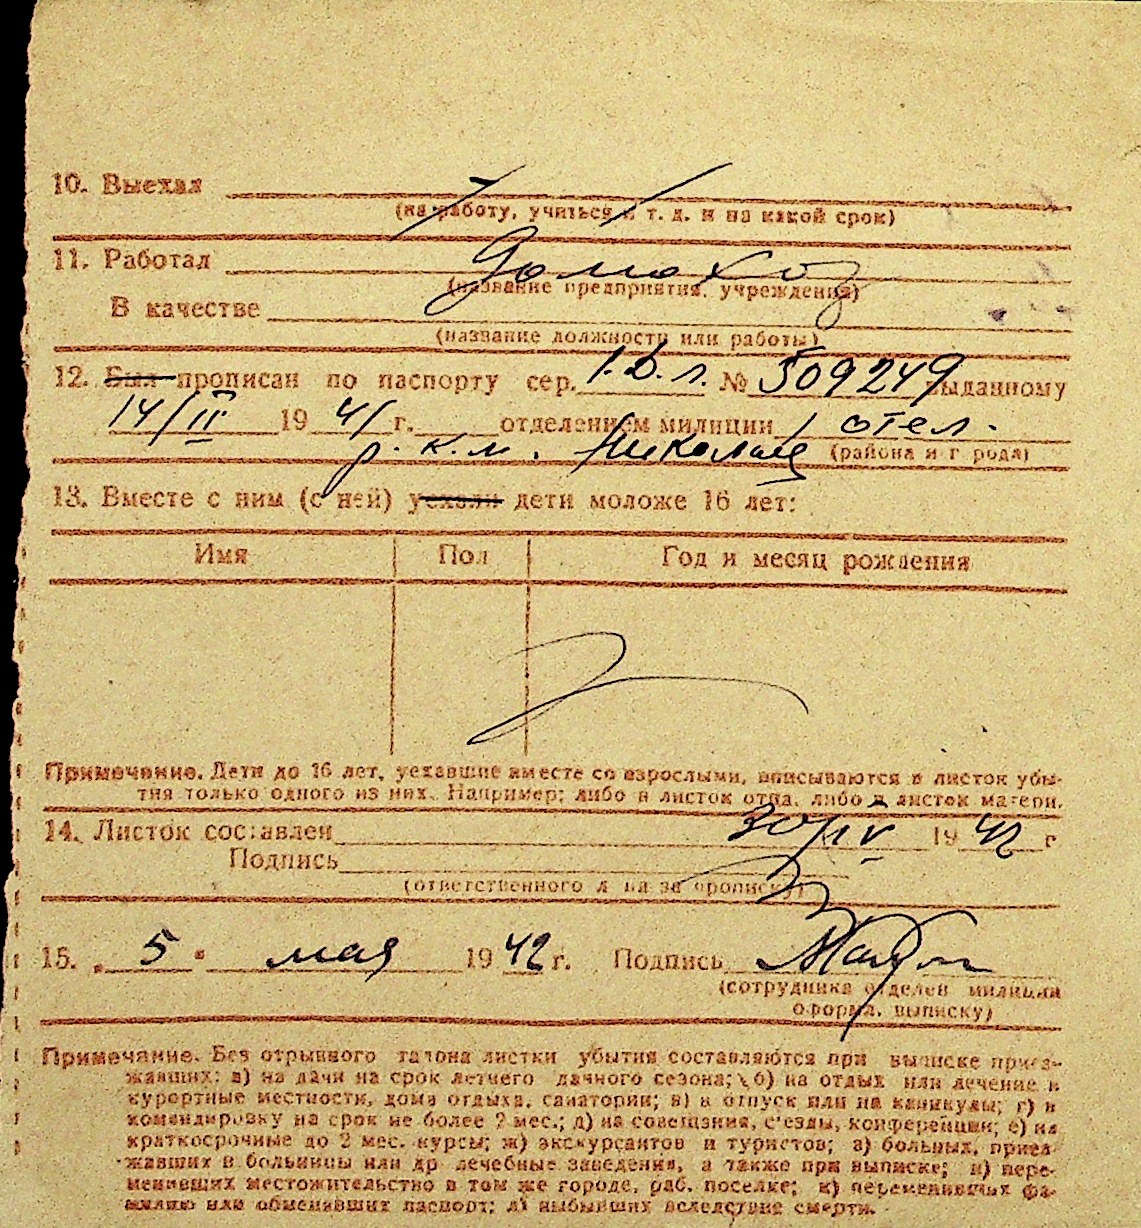 10. Выехал
(на работу, учиться и т. д. и на какой срок)
11. Работал домохоз
(название предприятия, учреждения)
В качестве
(название должности или работы)
12. Был прописан по паспорту сер. I.Д.л. № 509249 выданному
14/III 1941 г. отделением милиции 1 отел.
р. к. м. (района и города)
13. Вместе с ним (с ней) уехали дети моложе 16 лет:
Имя Пол Год и месяц рождения
Примечание. Дети до 16 лет, уехавшие вместе со взрослыми, вписываются в листок убы-
тия только одного из них. Например: либо в листок отца, либо в листок матери.
14. Листок составлен 30/IV 1942 г
Подпись
(ответственного л на за прописку)
15. „5" мая 1942 г. Подпись
(сотрудника отделен милиции
оформ. выписку)
Примечание. Без отрывного талона листки убытия составляются при выписке приез-
жавших: а) на дачи на срок летнего дачного сезона; б) на отдых или лечение в
курортные местности, дома отдыха, санатории; в) в отпуск или на каникулы; г) в
командировку на срок не более 2 мес.; д) на совещания, с'езды, конференции; е) на
краткосрочные до 2 мес. курсы; ж) экскурсантов и туристов; з) больных, приез-
жавших в больницы или др лечебные заведения, а также при выписке; и) пере-
менивших местожительство в том же городе, раб. поселке; к) переменивших фа-
милию или обменявших паспорт; л) выбывших вследствие смерти.